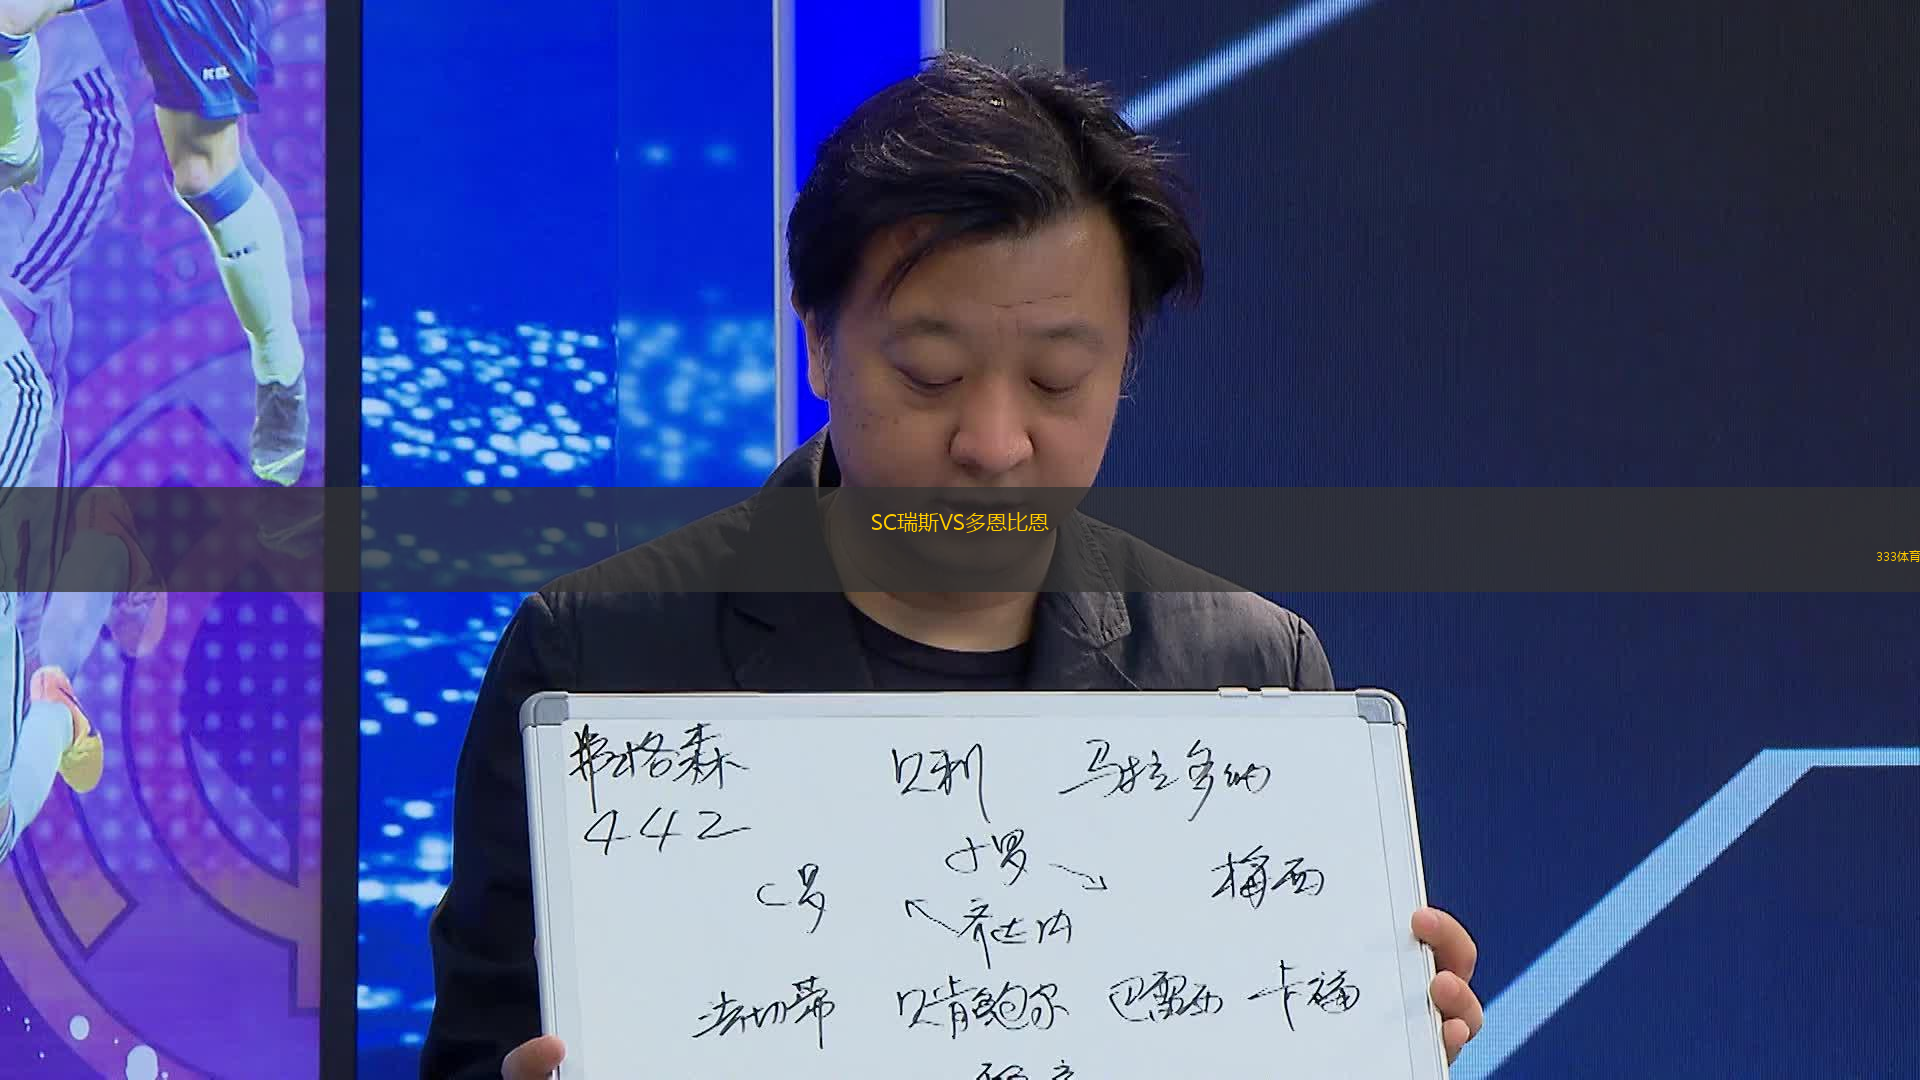 KEL
SC瑞斯VS多恩比恩
333体育
弗格森 贝利 马拉多纳
442
小罗
C罗 梅西
齐达内
法切蒂 贝肯鲍尔 巴雷西 卡福